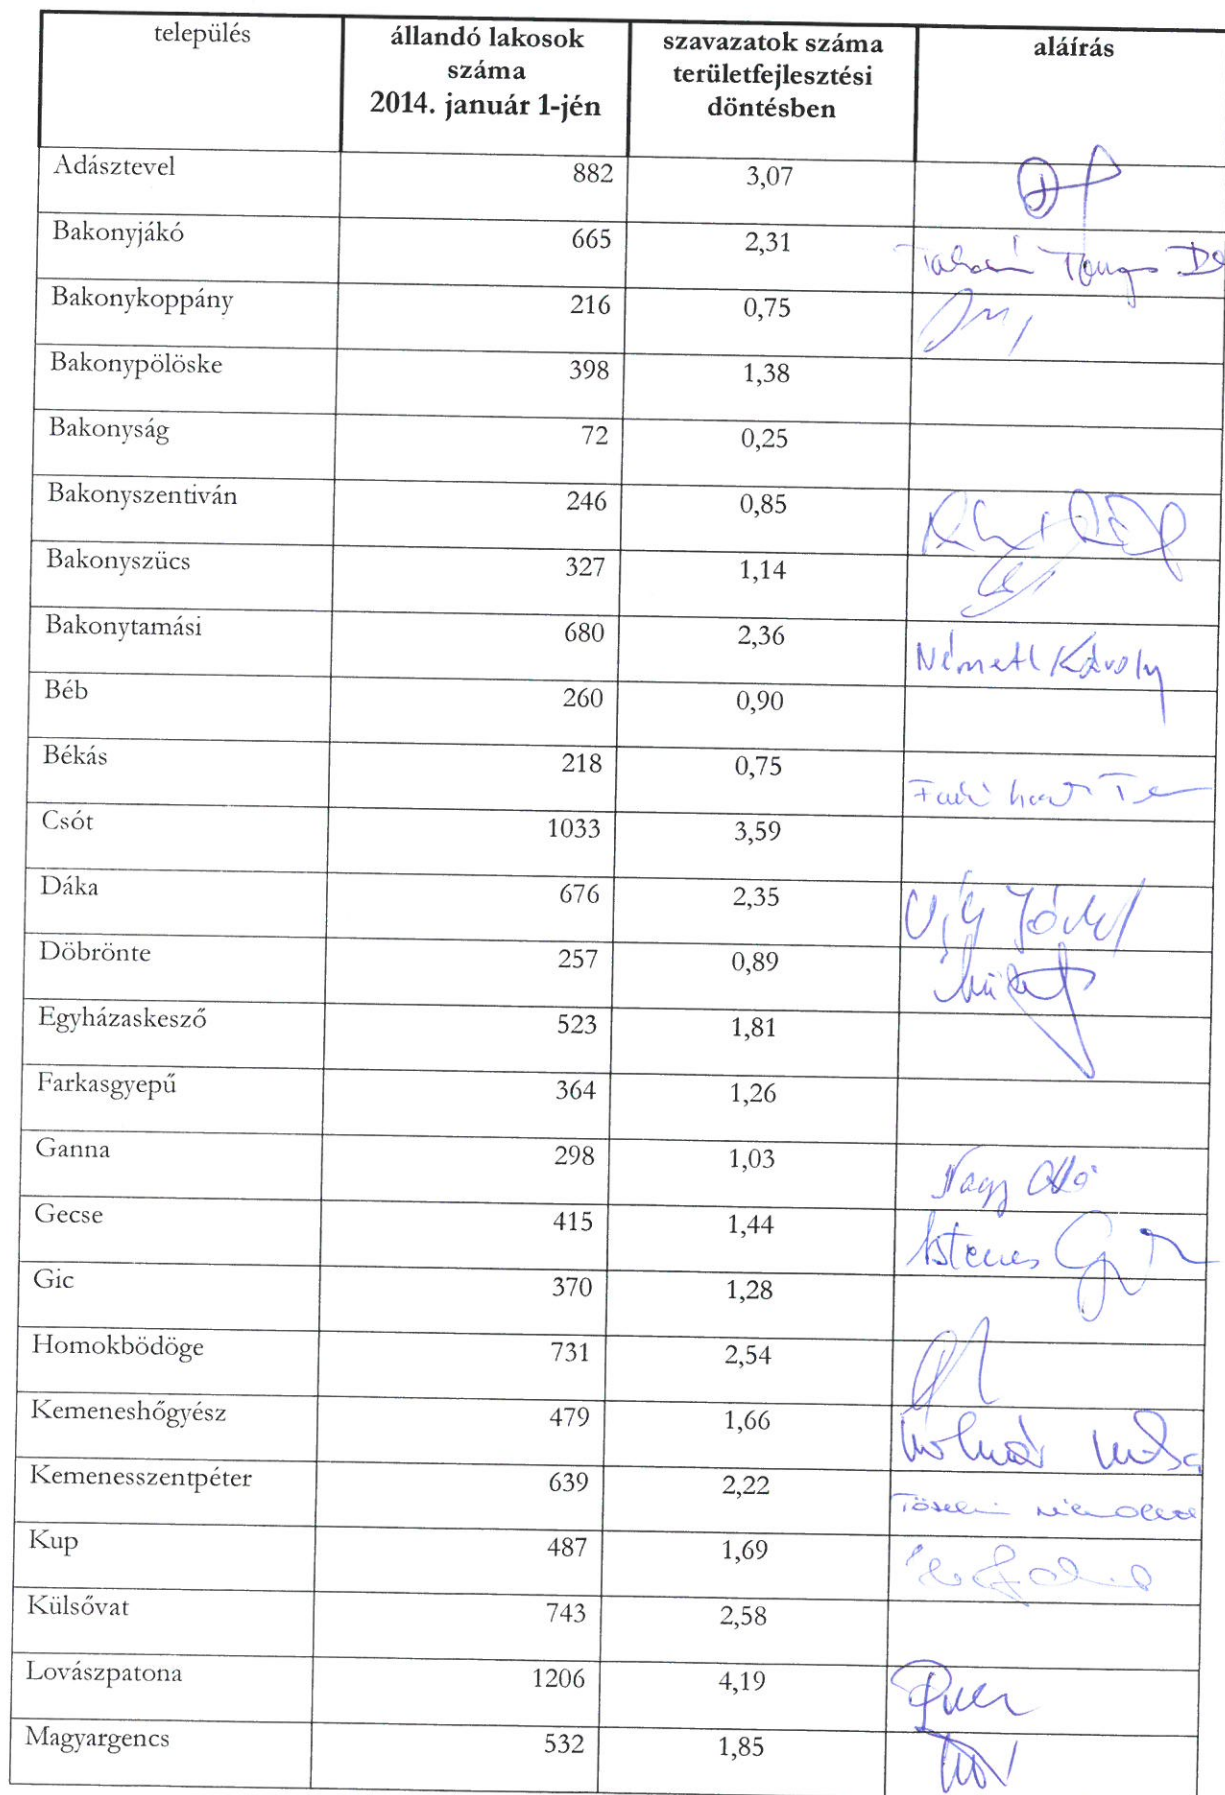 település állandó lakosok szavazatok száma aláírás
száma területfejlesztési
2014. január 1-jén döntésben
Adásztevel 882 3,07
Bakonyjákó 665 2,31
Bakonykoppány 216 0,75
Bakonypölöske 398 1,38
Bakonyság 72 0,25
Bakonyszentiván 246 0,85
Bakonyszücs 327 1,14
Bakonytamási 680 2,36 Németh Károly
Béb 260 0,90
Békás 218 0,75
Csót 1033 3,59
Dáka 676 2,35
Döbrönte 257 0,89
Egyházaskesző 523 1,81
Farkasgyepű 364 1,26
Ganna 298 1,03 Nagy Ottó
Gecse 415 1,44 Istenes
Gic 370 1,28
Homokbödöge 731 2,54
Kemeneshőgyész 479 1,66 Molnár
Kemenesszentpéter 639 2,22
Kup 487 1,69
Külsővat 743 2,58
Lovászpatona 1206 4,19
Magyargencs 532 1,85